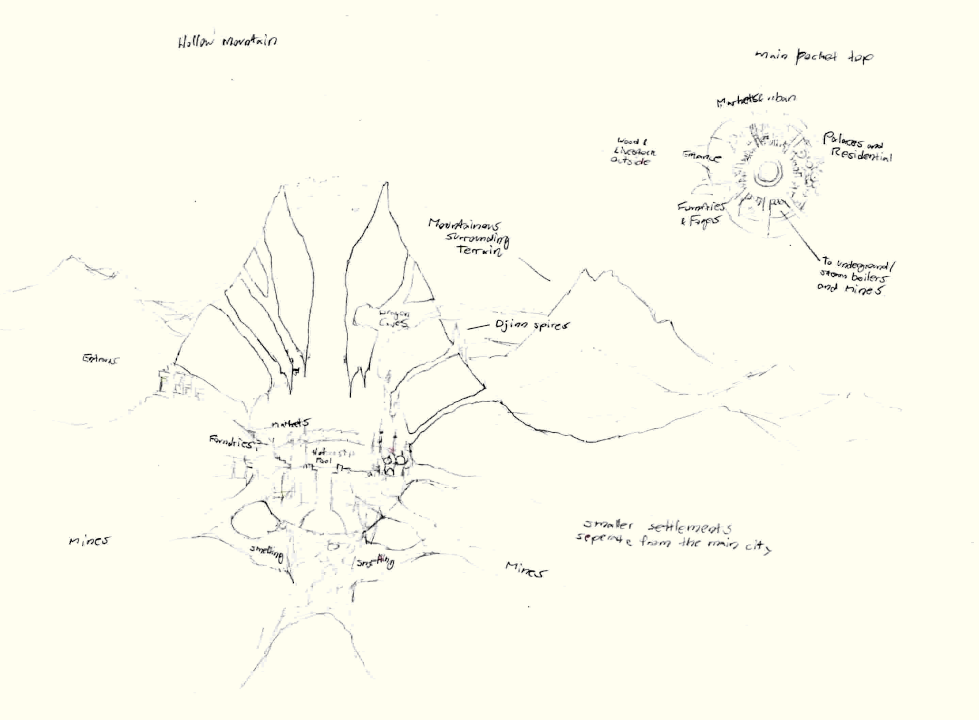 Hollow Mountain
main pocket top
Wood &
Livestock
Outside
Entrance
Palaces and
Residential
Foundries
& Forges
To underground/
steam boilers
and Mines
Mountainous
surrounding
Terrain
Dragon
Caves
Djinn spires
Entrance
markets
Foundries
Hot
Pool
Mines
smelting
smelting
Mines
smaller settlements
seperate from the main city